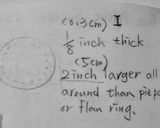 (0.3cm) I
1/8 inch thick
(5cm)
2inch larger all
around than piepan
or flan ring.